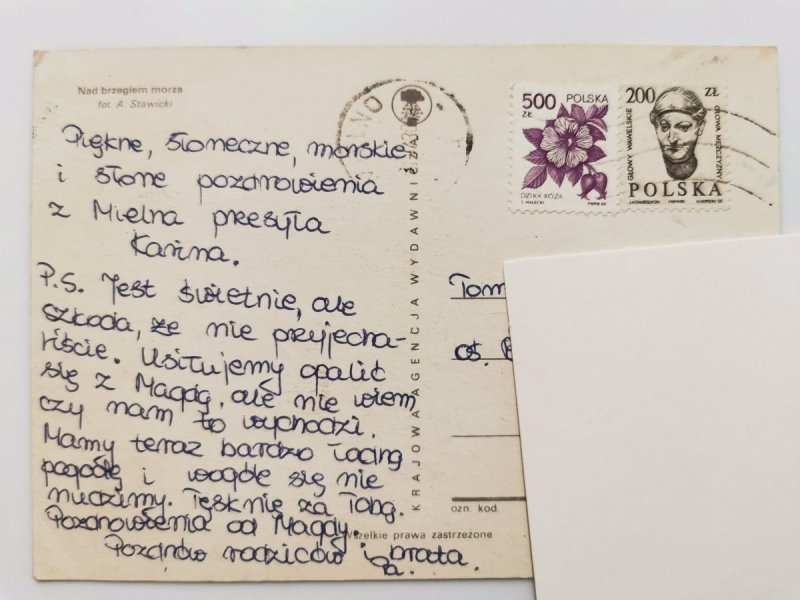 Nad brzegiem morza
fot. A. Stawicki
Piękne, słoneczne, morskie
i słone pozdrowienia
z Mielna przesyła
Karina.
P.S. Jest świetnie, ale
szkoda, że nie przyjecha-
liście. Usiłujemy opalić
się z Magdą, ale nie wiem
czy nam to wychodzi.
Mamy teraz bardzo ładną
pogodę i wogóle się nie
nudzimy. Tęsknię za Tobą.
Pozdrowienia od Magdy.
Pozdrów rodziców i brata.
Pa.
KRAJOWA AGENCJA WYDAWNICZA
500
ZŁ
POLSKA
DZIKA RÓŻA
200 ZŁ
GŁOWY WAWELSKIE
GŁOWA MĘŻCZYZNY
POLSKA
Tom
os.
ozn. kod.
Wszelkie prawa zastrzeżone